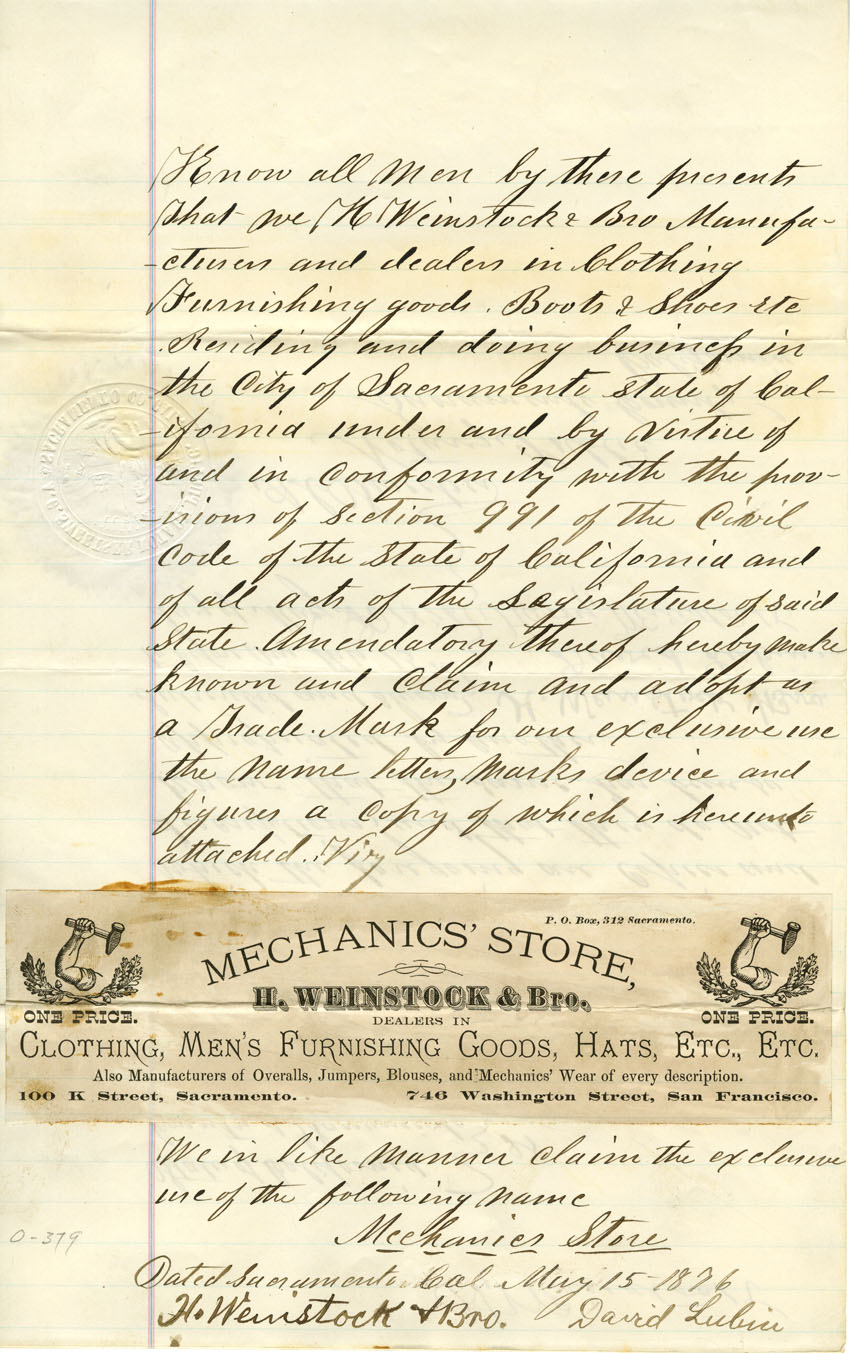 Know all men by these presents
That we H Weinstock & Bro Manufa-
-cturers and dealers in Clothing
Furnishing goods. Boots & Shoes etc
Residing and doing business in
the City of Sacramento state of Cal-
-ifornia under and by virtue of
and in conformity with the prov-
-isions of section 991 of the Civil
code of the State of California and
of all acts of the Legislature of said
State Amendatory thereof hereby make
known and claim and adopt as
a Trade. Mark for our exclusive use
the name letters, marks device and
figures a copy of which is hereunto
attached. Viz
P. O. Box, 312 Sacramento.
MECHANICS' STORE,
H. WEINSTOCK & Bro.
ONE PRICE. ONE PRICE.
DEALERS IN
CLOTHING, MEN'S FURNISHING GOODS, HATS, ETC., ETC.
Also Manufacturers of Overalls, Jumpers, Blouses, and Mechanics' Wear of every description.
100 K Street, Sacramento. 746 Washington Street, San Francisco.
We in like manner claim the exclusive
use of the following name
Mechanics Store
0-379
Dated Sacramento Cal May 15-1876
H. Weinstock & Bro. David Lubin